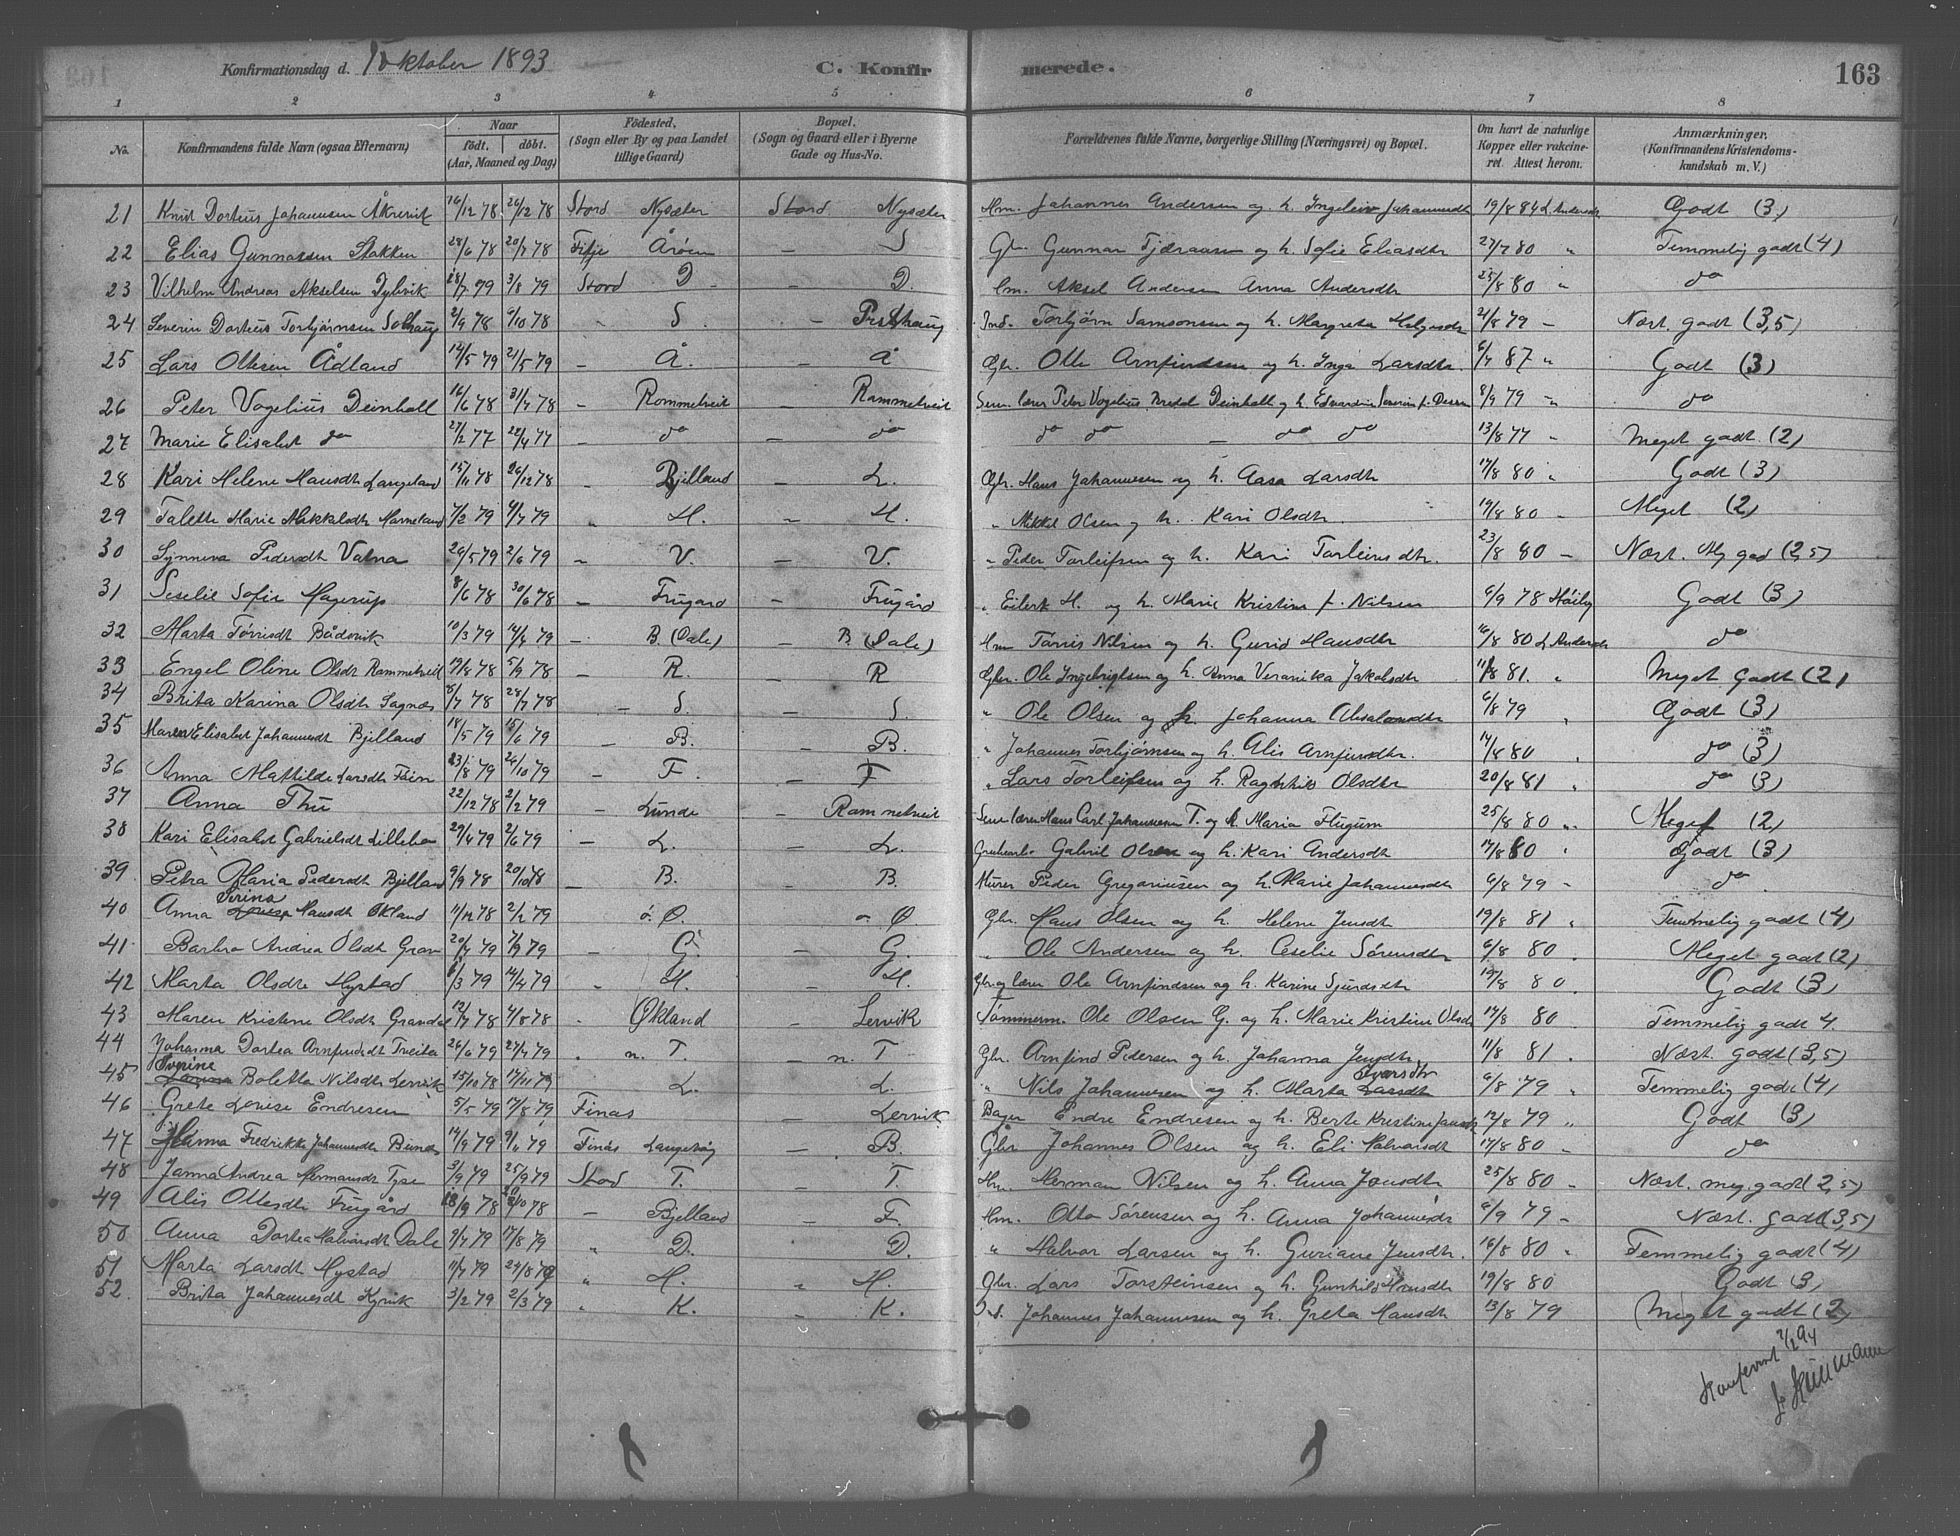 Konfirmationsdag d. 1 Oktober 1893 C. Konfirmerede. 163
1 2 3 4 5 6 7 8
No. Konfirmandens fulde Navn (ogsaa Efternavn) Naar födt. döbt. (Aar, Maaned og Dag) Födested. (Sogn eller By og paa Landet tillige Gaard) Bopæl. (Sogn og Gaard eller i Byerne Gade og Hus-No. Forældrenes fulde Navne, borgerlige Stilling (Næringsvei) og Bopæl. Om havt de naturlige Kopper eller vakcineret. Attest herom. Anmærkninger. (Konfirmandens Kristendomskundskab m. V.)
21 Knut Dorteus Johannesen Åkrevik 16/12 78 26/12 78 Stord Nysæter Stord Nysæter Hm. Johannes Andersen og h. Ingeleiv Johannesdtr 19/8 84 L. Andersen Godt (3)
22 Elias Gunnarsen Stokken 28/6 78 20/7 78 Fitje Årøen — S Gbr. Gunnar Tjæransen og h. Sofie Eliasdtr 27/7 80 " Temmelig godt (4)
23 Vilhelm Andreas Akselsen Dybvik 28/7 79 3/8 79 Stord D — D. Hm. Aksel Andersen Anna Andersdtr 25/8 80 " do
24 Severin Dorteus Torbjørnsen Solhaug 2/9 78 6/10 78 " S. — Prsthaug Ind. Torbjørn Samsonsen og h. Margreta Helgesdtr 21/8 79 — Næst. godt (3,5)
25 Lars Ottesen Ådland 12/5 79 21/5 79 — Å. — Å Gbr. Otte Arnfindsen og h. Inga Larsdtr. 6/7 87 " Godt (3)
26 Peter Vogelius Deinboll 16/6 78 31/7 78 — Rommetveit — Rommetveit Sem. lærer Peter Vogelius Bredal Deinboll og h. Edvardine Severine f. Dessen 8/9 79 " do
27 Marie Elisabet do 27/2 77 22/4 77 — do — do do do — do do 13/8 77 " Meget godt. (2)
28 Kari Helene Hansdtr Langeland 15/11 78 26/12 78 — Bjelland — L. Gbr. Hans Johannesen og h. Aasa Larsdtr 17/8 80 " Godt (3)
29 Talette Marie Mikkelsdtr Horneland 7/2 79 6/4 79 " H. — H. " Mikkel Olsen og h. Kari Olsdtr. 19/8 80 — Meget (2)
30 Synneva Pedersdtr Vatna 26/5 79 2/6 79 — V. — V. " Peder Torleifsen og h. Kari Torleivsdtr. 23/8 80 — Næst. Mg god (2,5)
31 Seselie Sofie Hagerup 8/6 78 30/6 78 — Frugard — Frugård " Eilert H. og h. Marie Kristine f. Nilsen 6/9 78 Godt (3)
32 Marta Tørrisdtr Bådsvik 10/3 79 14/4 79 — B (Dale) — B (Dale) Hm Tørris Nilsen og h. Gurid Hansdtr 16/8 80 L Andersen do
33 Engel Oline Olsdtr Rommetveit 19/8 78 5/9 78 — R. — R Gbr. Ole Ingebrigtsen og h. Anna Veranika Jakobsdtr 11/8 81. " Meget godt (2)
34 Brita Karina Olsdtr Sagnæs 5/7 78 28/7 78 — S. — S. " Ole Olsen og h. Johanna Absalonsdtr 6/8 79 " Godt (3)
35 Maren Elisabet Johannesdtr Bjelland 18/5 79 15/6 79 — B. — B. " Johannes Torbjørnsen og h. Alis Arnfinsdtr. 14/8 80 " do (3)
36 Anna Matilde Larsdtr Føien 23/8 79 26/10 79 — F. — F " Lars Torleifsen og h. Ragnhild Olsdtr 20/8 81 " do (3)
37 Anna Thu 22/12 78 2/2 79 — Lunde — Rommetveit Sem. lærer Hans Carl Johannesen T. og h. Maria Flugum 25/8 80 " Meget (2)
38 Kari Elisabet Gabrielsdtr Lillebø 29/4 79 2/6 79 — L. — L. Gabriel Olsen og h. Kari Andersdtr 17/8 80 " Godt (3)
39. Petra Maria Pedersdtr Bjelland 9/9 78 20/10 78 — B. — B. Murer Peder Gregoriusen og h. Marie Johannesdtr 6/8 79 — do
40 Anna Sirina Hansdtr Økland 11/12 78 2/2 79 ö. Ø. ö. Ø. Gbr. Hans Olsen og h. Helene Jensdtr 19/8 81 " Temmelig godt (4)
41 Barbra Andrea Olsdtr Grov 20/7 79 7/9 79 — G. — G. " Ole Andersen og h. Ceselie Sørensdtr 6/8 80 " Meget godt (2)
42 Marta Olsdtr Hystad 6/3 79 14/4 79 " H. — H. Gbr. og lærer Ole Arnfindsen og h. Karine Sjursdtr 19/8 80. Godt (3)
43 Maren Kristene Olsdtr Grandal 12/7 78 4/8 78 " Økland — Lervik Tømmerm. Ole Olsen G. og h. Marie Kristine Olsdtr 14/8 80 Temmelig godt 4.
44 Johanna Dortea Arnfinsdtr Tveita 26/6 79 27/7 79 " n. T. — n. T Gbr. Arnfind Pedersen og h. Johanna Jensdtr 11/8 81 . Næst. godt (3,5)
45 Sverine Boletta Nilsdtr Lervik 15/10 78 17/11 78 L. L. " Nils Johannesen og h. Marta Ivarsdtr 6/8 79 " Temmelig godt (4)
46 Grete Lovise Endresen 5/5 79 17/8 79 Finås — Lervik Bager Endre Endresen og h. Berte Kristine 12/8 79 " Godt (3)
47 Fredrikke Johannesdtr 14/9 79 9/11 79 Finås Langevåg — B. Gbr Johannes Olsen og h. Eli Halvorsdtr 17/8 80 " do
48 Janna Andrea Hermansdtr Tyse 3/9 79 25/9 79 Stord T. — T. Hm. Herman Nilsen og h. Anna Jonsdtr 25/8 80 — Næst. meg. godt (2,5)
49 Alis Ottesdtr Frugård 18/9 78 /10 78 — Bjelland — F. Hm. Otto Sørensen og h. Anna Johannesdtr 6/9 79 — Næst. godt (3,5)
50 Anna Dortea Halvorsdtr Dale 9/7 79 17/8 79 " D. — D. " Halvor Larsen og h. Guriane Jensdtr. 16/8 80 " Temmelig godt (4)
51 Marta Larsdtr Hystad 11/7 79 24/8 79 " H. " H. Gbr. Lars Torsteinsen og h. Gunhild Hansdtr 19/8 80 Godt (3)
52. Brita Johannesdtr Kyvik 3/2 79 2/3 79 " K. — K. Ind. Johannes Johannesen og h. Greta Hansdtr 13/8 79 Meget godt (2)
Konfereret 94